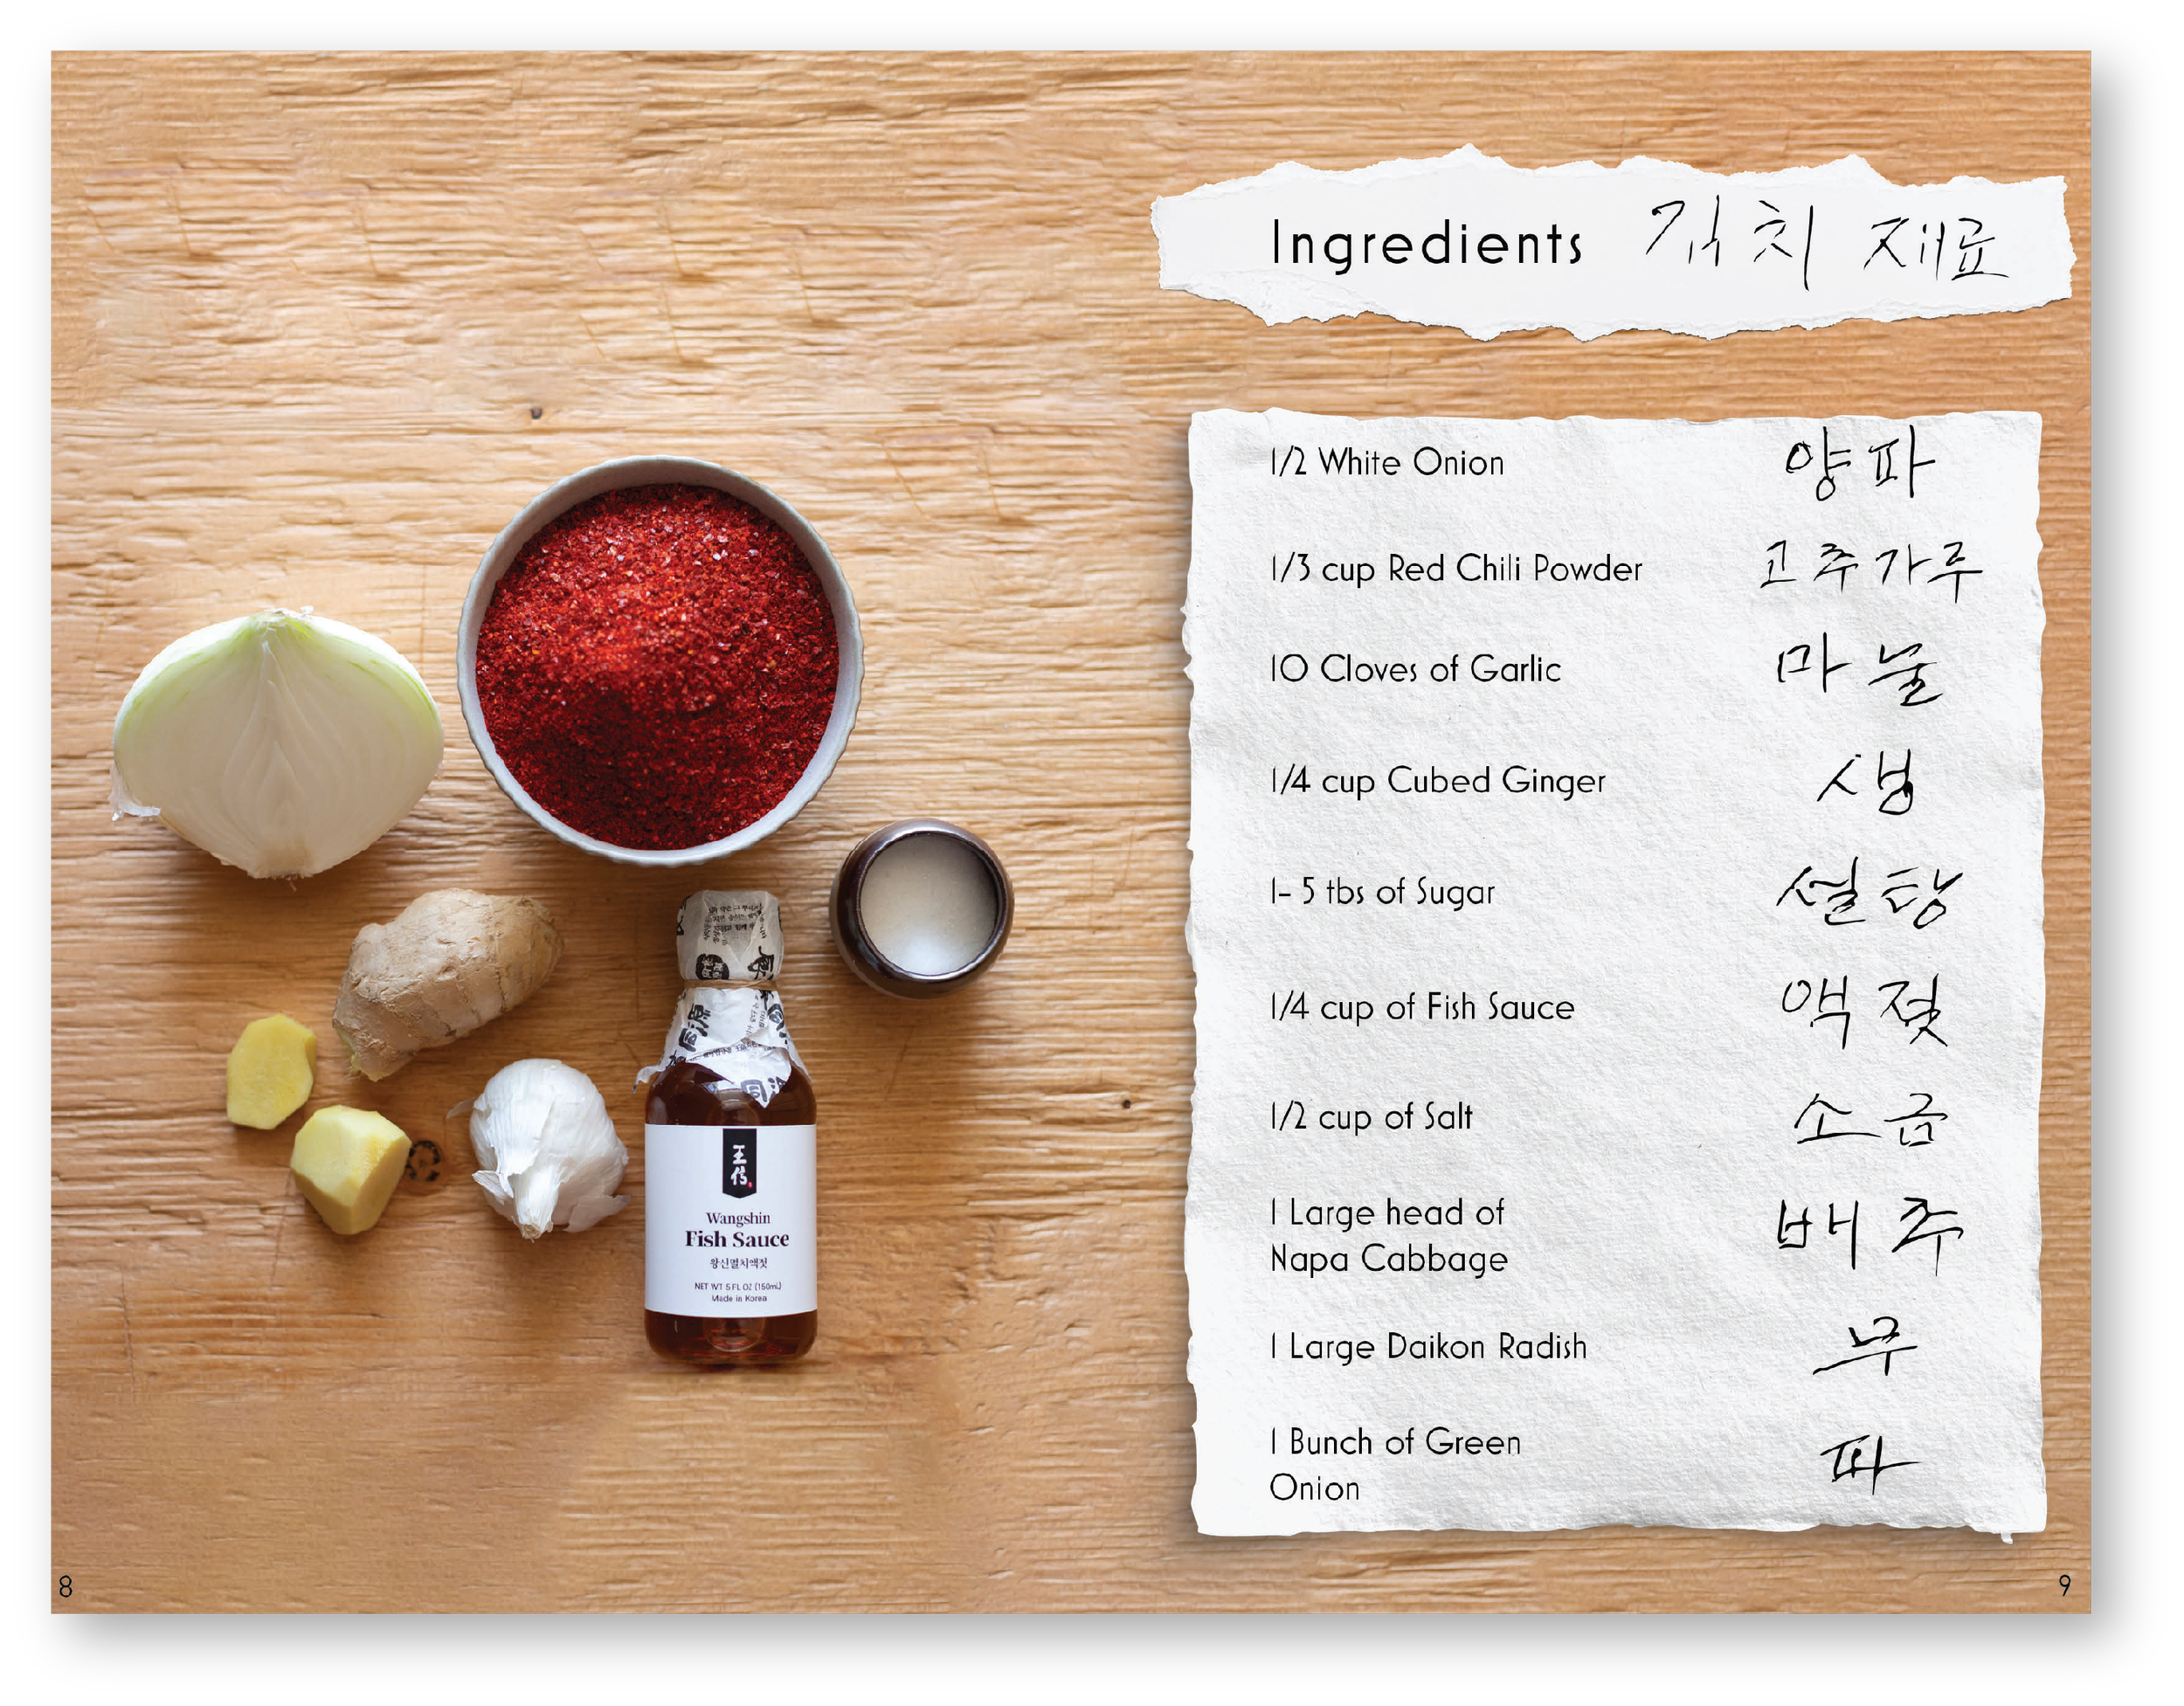 Ingredients 김치 재료
1/2 White Onion 양파
1/3 cup Red Chili Powder 고추가루
10 Cloves of Garlic 마눌
1/4 cup Cubed Ginger 생
1- 5 tbs of Sugar 설탕
1/4 cup of Fish Sauce 액젖
1/2 cup of Salt 소금
1 Large head of
Napa Cabbage 배추
1 Large Daikon Radish 무
1 Bunch of Green
Onion 파
Wangshin
Fish Sauce
왕신멸치액젓
NET WT 5 FL OZ (150mL)
Made in Korea
8
9